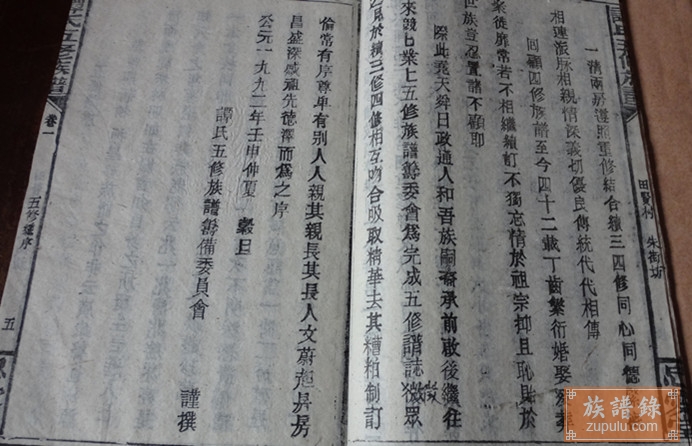 譚氏五修族譜
田賢村 朱樹坊
一清兩房遵照重修結合續三四修同心同德
相連派脉相親情深義切優良傳統代代相傳
回顧四修族譜至今四十二載丁齒繁衍婚娶
衆徙靡常若不相繼續訂不獨忘情於祖宗抑且恥貽於
世族豈忍置諸不顧耶
際此堯天舜日政通人和吾族嗣裔承前啟後繼往
來競上五修族譜籌委會爲完成五修譜誌徵眾
於續三修四修相互吻合吸取精華去其糟粕制訂
倫常有序尊卑有别人人親其親長其長人文蔚起昇房
昌盛深感祖先德澤而爲之序
公元一九九二年壬申仲夏 穀旦
譚氏五修族譜籌備委員會
謹撰
氏五修族譜 卷一 五修序 五
族譜錄
zupulu.com